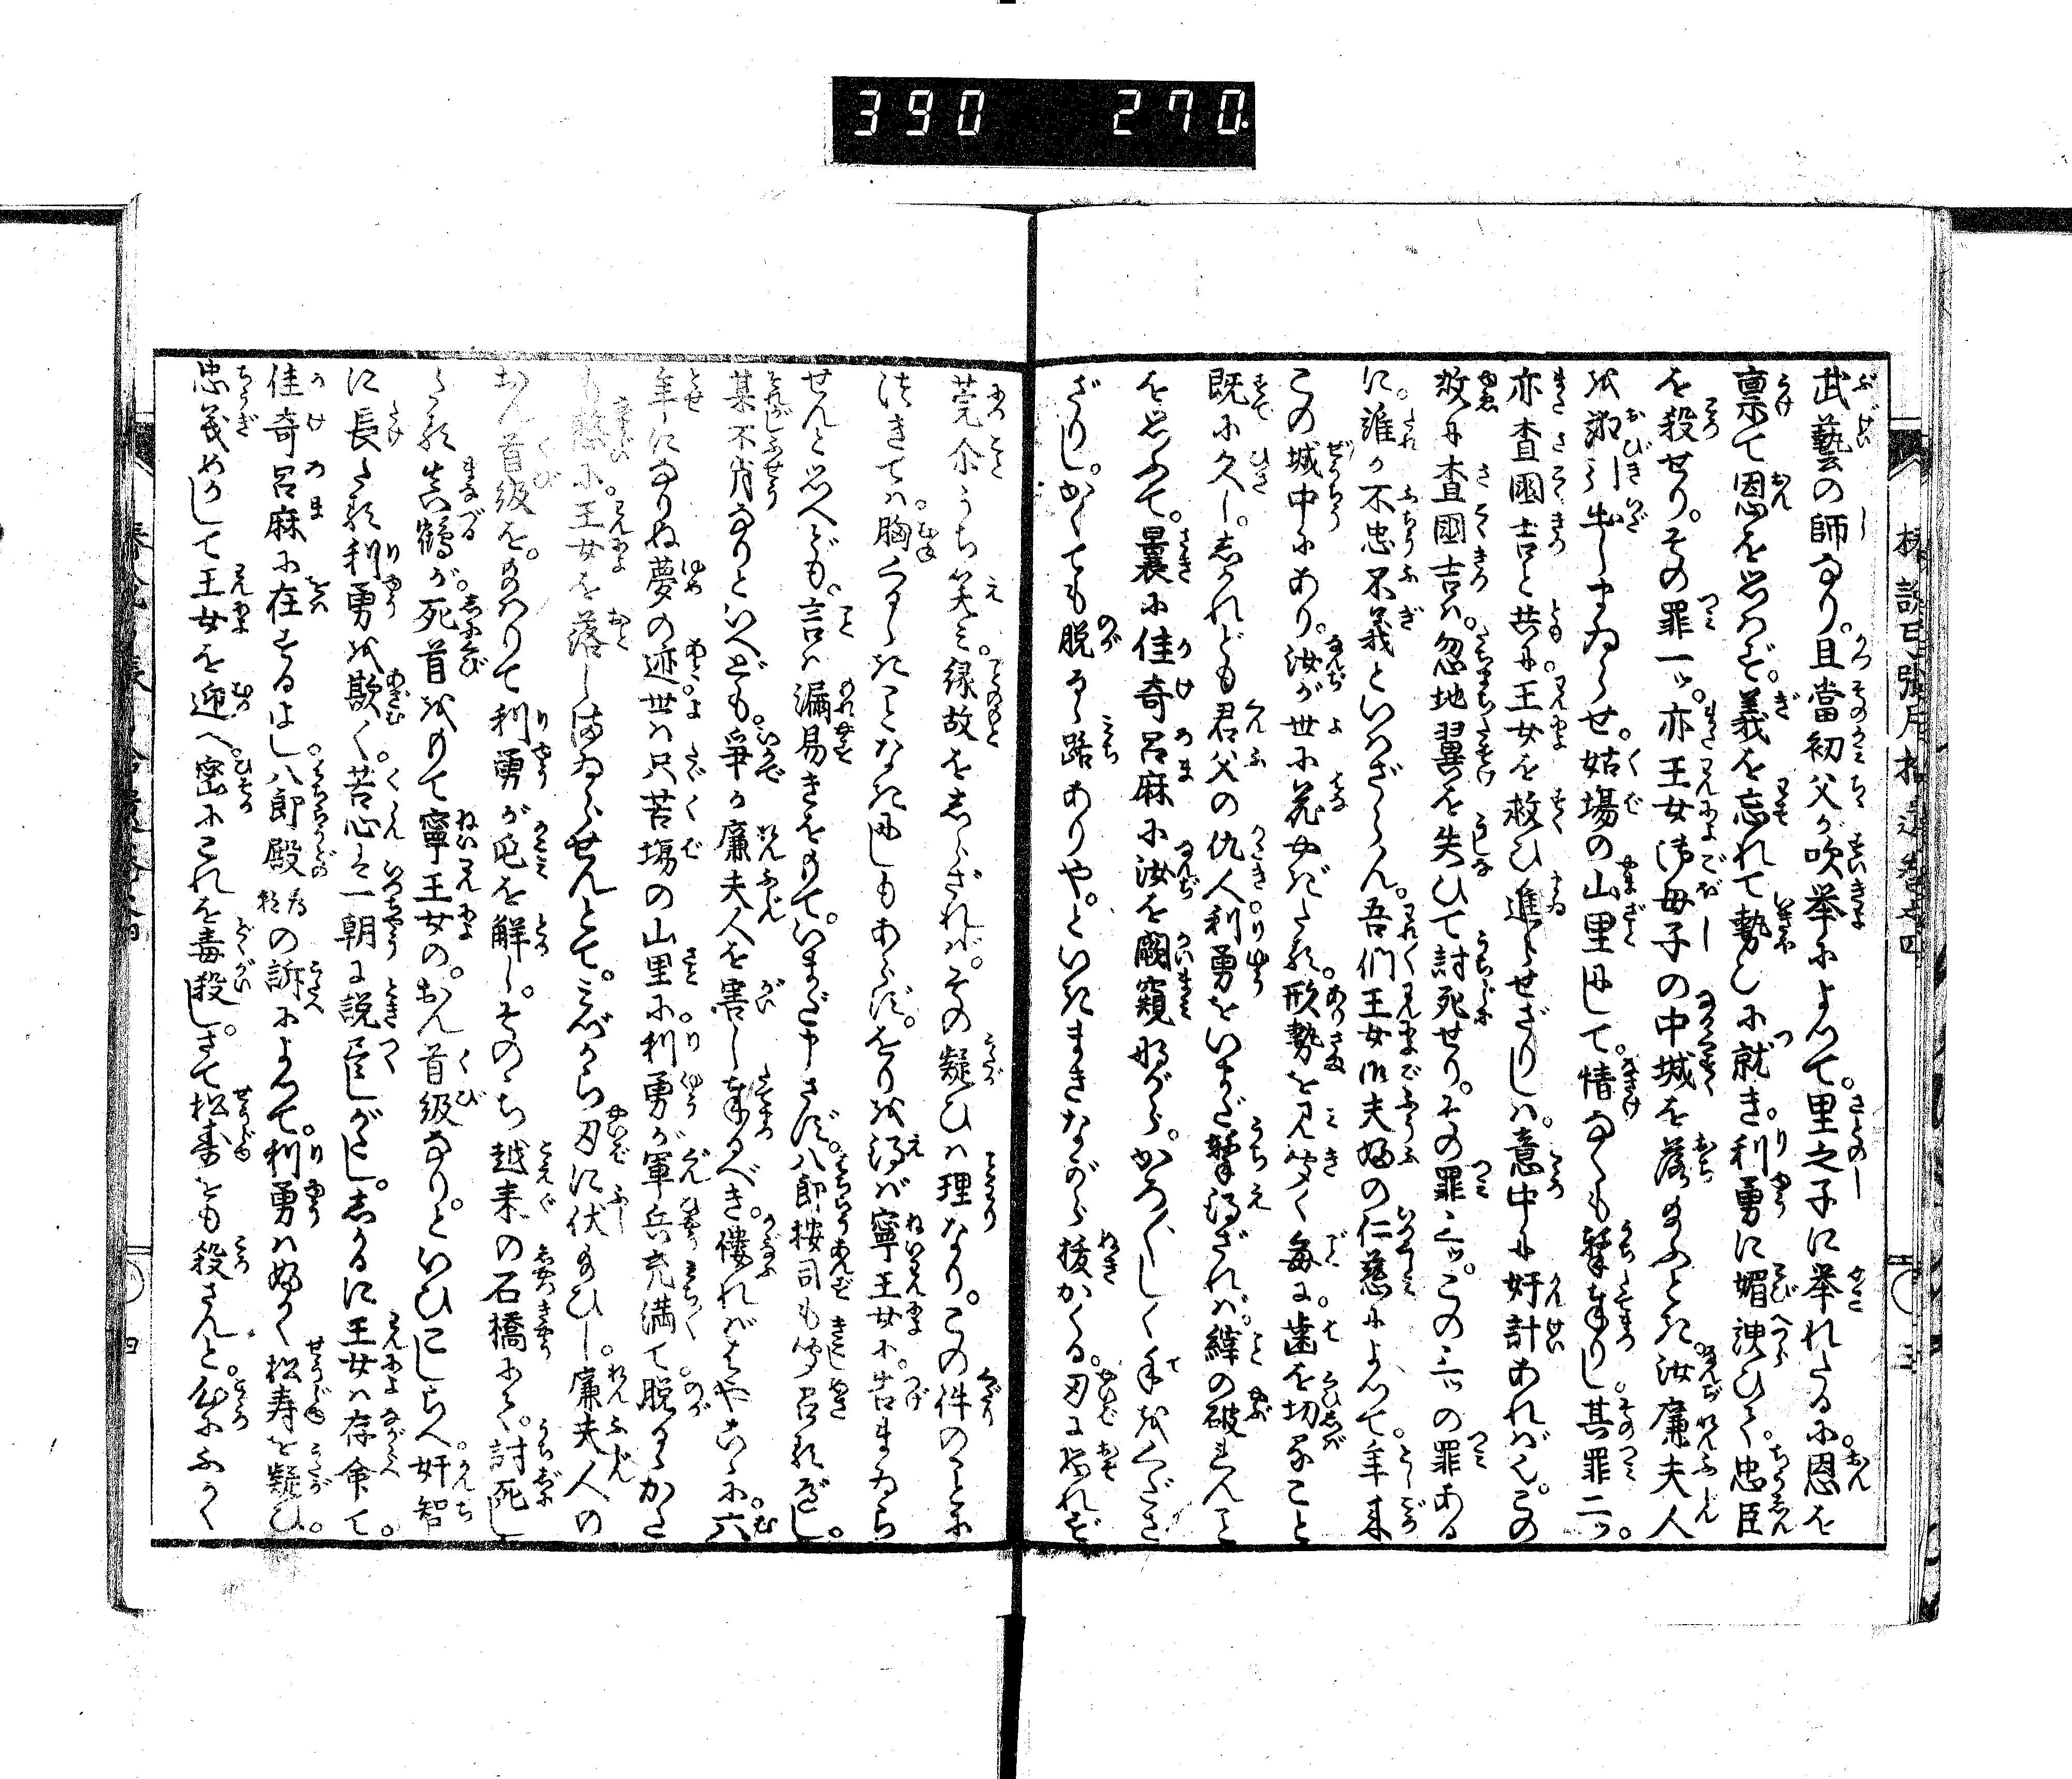 390 270
武藝の師なり。且當初父が吹挙によつて。里之子に挙れたるに。恩を
禀て恩を思はず。義を忘れて勢ひに就き。利勇に媚諛ひて。忠臣
を殺せり。その罪一ッ。亦王女御母子の中城を落給ふとき。汝廉夫人
を誘引出しまゐらせ。姑場の山里にして。情なくも撃奉りし。其罪二ッ。
亦査國吉と共に。王女を救ひ進らせざりしは。意中に奸計あればなり。この
故に査國吉は。忽地翼を失ひて討死せり。その罪三ッ。この三ッの罪ある
に。誰か不忠不義といはざらん。吾們王女御夫婦の仁慈によつて。年来
この城中にあり。汝が世に花やぎたる。形勢を見聞く毎に。歯を切ること
既に久し。しかれども君父の仇人利勇をいまだ撃得ざれば。縡の破れんこと
を思ふて。曩に佳奇呂麻に汝を闚窺ながら。かろ／＼しく手を下さ
ざりし。かくても脱るゝ路ありや。といきまきながら抜かくる。刃に怕れず
莞尓とうち笑み。縁故をしらざれば。その疑ひは理なり。この件のことに
つきては。胸くるしきことなきにしもあらず。をりを得ば寧王女に。告まゐら
せんと思へども。言は漏易きをもて。いまだ申さず。八郎按司も聞召るべし。
某不肖なりといへども。争か廉夫人を害し奉るべき。僂ればはやこゝに。六
年になりぬ夢の迹。世は只苦塲の山里に。利勇が軍兵充満て。脱るゝかた
も憖に。王女を落しまゐらせんとて。みづから刃に伏給ひし。廉夫人の
おん首級を。給はりて利勇が疑を解し。そのゝち越来の石橋にて。討死し
たる真鶴が。死首をもて寧王女の。おん首級なり。といひこしらへ。奸智
に長たる利勇を欺く。苦心は一朝に説尽しがたし。しかるに王女は存命て。
佳奇呂麻に在するよし。八郎殿為頼の訴によつて。利勇は婦かく松寿を疑ひ。
忠義めかして王女を迎へ。密にこれを毒殺し。さて松寿をも殺さんと。